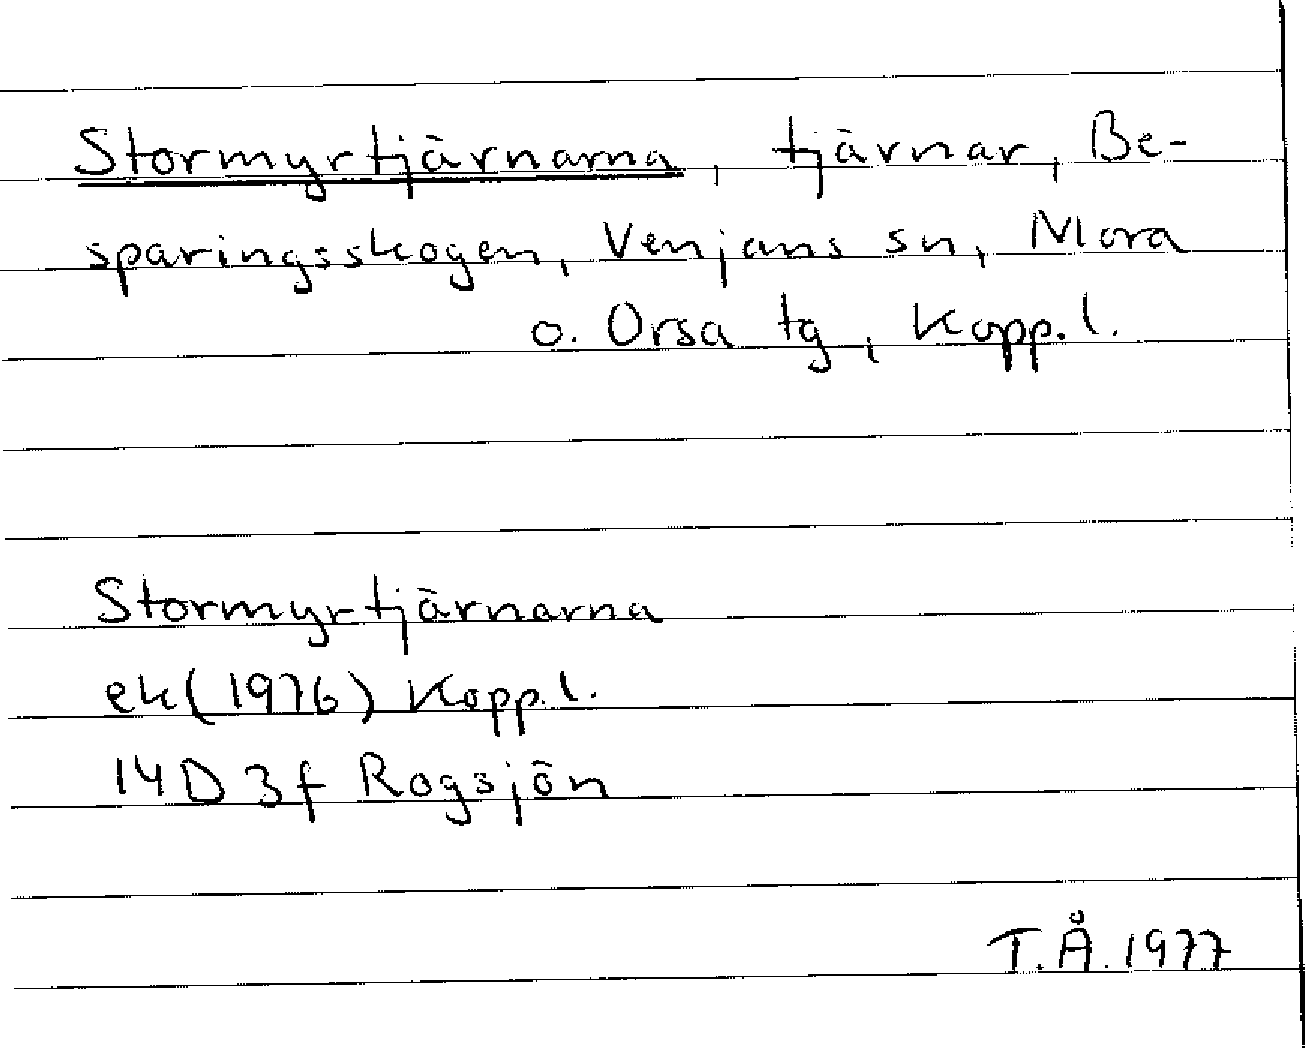 Stormyrtjärnarna, tjärnar, Be-
sparingsskogen, Venjans sn, Mora
o. Orsa tg, Kopp.l.
Stormyrtjärnarna
ek(1976) Kopp.l.
14D 3f Rogsjön
T.Å.1977